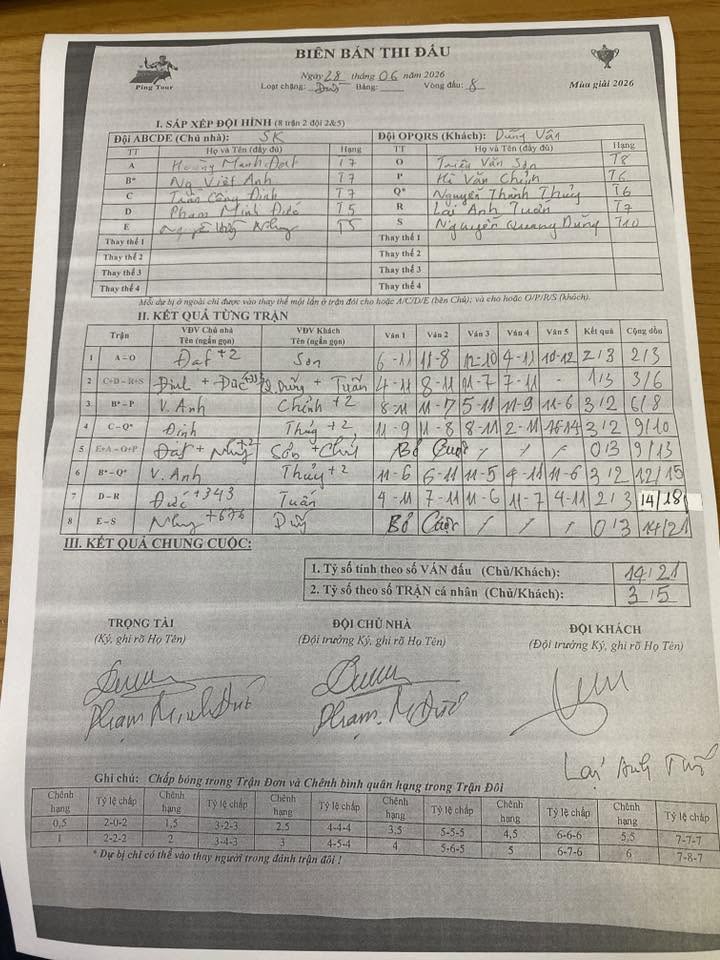 BIÊN BẢN THI ĐẤU
Ping Tour
Ngày 28 tháng 06 năm 2026
Loại chặng: Bảng: Vòng đấu: 8
Mùa giải 2026
I. SẮP XẾP ĐỘI HÌNH (8 trận 2 đội 2&5)
Đội ABCDE (Chủ nhà): SK Đội OPQRS (Khách): Dũng Vân
TT Họ và Tên (đầy đủ) Hạng TT Họ và Tên (đầy đủ) Hạng
A Hoàng Mạnh Đạt T7 O Triệu Văn Sơn T8
B* Ng Việt Anh T7 P Hà Văn Chỉnh T6
C Trần Công Định T7 Q* Nguyễn Thành Thủy T6
D Phạm Minh Đức T5 R Lại Anh Tuấn T7
E Nhung T5 S Nguyễn Quang Dũng T10
Thay thế 1 Thay thế 1
Thay thế 2 Thay thế 2
Thay thế 3 Thay thế 3
Thay thế 4 Thay thế 4
Mỗi dự bị ở ngoài chỉ được vào thay thế một lần ở trận đôi cho hoặc A/C/D/E (bên Chủ); và cho hoặc O/P/R/S (khách).
II. KẾT QUẢ TỪNG TRẬN
Trận VĐV Chủ nhà Tên (ngắn gọn) VĐV Khách Tên (ngắn gọn) Ván 1 Ván 2 Ván 3 Ván 4 Ván 5 Kết quả Cộng dồn
1 A – O Đạt +2 Sơn 6-11 11-8 12-10 4-11 10-12 2/3 2/3
2 C+D – R+S Định + Đức Q. Dũng + Tuấn 4-11 8-11 11-7 7-11 - 1/3 3/6
3 B* – P V. Anh Chỉnh +2 8-11 11-7 5-11 11-9 11-6 3/2 6/8
4 C – Q* Định Thủy +2 11-9 11-8 8-11 2-11 16-14 3/2 9/10
5 E+A – O+P Đạt + Nhung +2 Sơn + Chỉnh Bỏ Cuộc / / / 0/3 9/13
6 B* – Q* V. Anh Thủy +2 11-6 6-11 11-5 4-11 11-6 3/2 12/15
7 D – R Đức +343 Tuấn 4-11 7-11 11-6 11-7 4-11 2/3 14/18
8 E – S Nhung +676 Dũng Bỏ Cuộc / / / 0/3 14/21
III. KẾT QUẢ CHUNG CUỘC:
1. Tỷ số tính theo số VÁN đấu (Chủ/Khách): 14/21
2. Tỷ số theo số TRẬN cá nhân (Chủ/Khách): 3/5
TRỌNG TÀI ĐỘI CHỦ NHÀ ĐỘI KHÁCH
(Ký, ghi rõ Họ Tên) (Đội trưởng Ký, ghi rõ Họ Tên) (Đội trưởng Ký, ghi rõ Họ Tên)
Phạm Minh Đức Phạm M Đức Lại Anh Tuấn
Ghi chú: Chấp bóng trong Trận Đơn và Chênh bình quân hạng trong Trận Đôi
Chênh hạng Tỷ lệ chấp Chênh hạng Tỷ lệ chấp Chênh hạng Tỷ lệ chấp Chênh hạng Tỷ lệ chấp Chênh hạng Tỷ lệ chấp Chênh hạng Tỷ lệ chấp
0,5 2-0-2 1,5 3-2-3 2,5 4-4-4 3,5 5-5-5 4,5 6-6-6 5,5 7-7-7
1 2-2-2 2 3-4-3 3 4-5-4 4 5-6-5 5 6-7-6 6 7-8-7
* Dự bị chỉ có thể vào thay người trong đánh trận đôi !